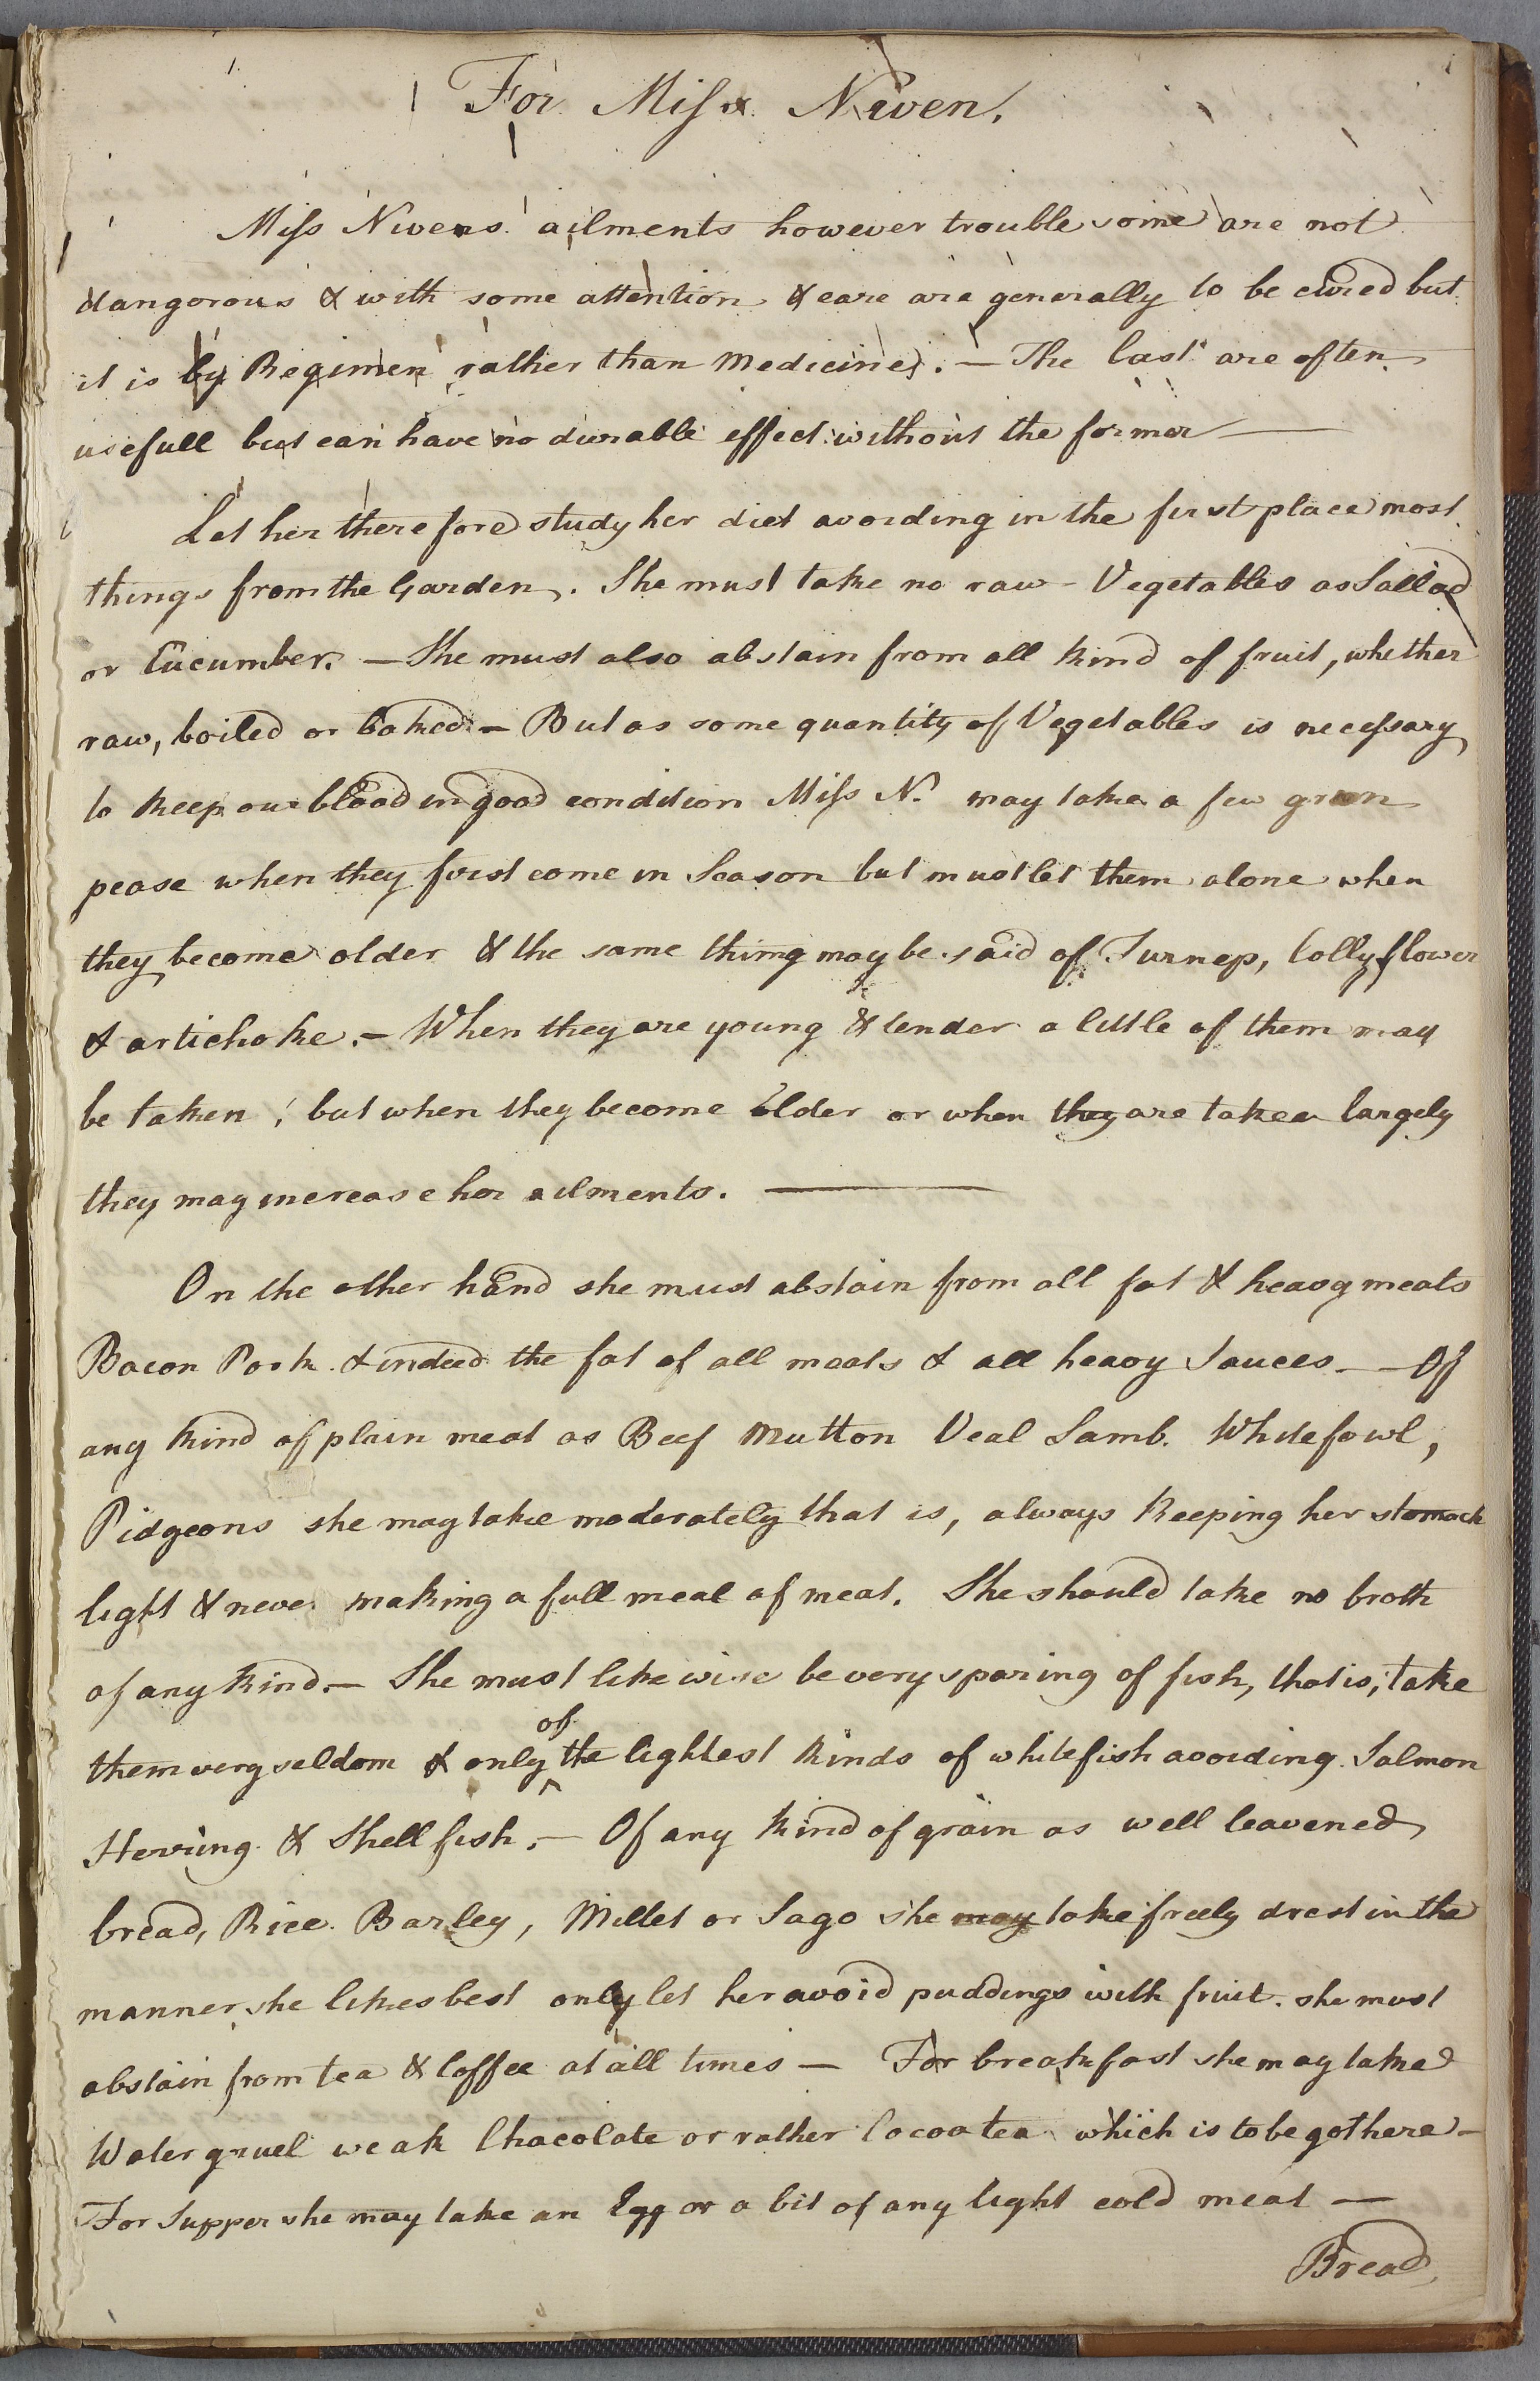 For Miss Niven.
Miss Nivens ailments however troublesome are not
dangorous & with some attention & care are generally to be cured but
it is by Regimen rather than Medicines. — The last are often
usefull but can have no durable effect without the former —
Let her therefore study her diet avoiding in the first place most
things from the Garden. She must take no raw Vegetables as Sallad
or Cucumber. — She must also abstain from all kind of fruit, whether
raw, boiled or baked — But as some quantity of Vegetables is necessary
to keep our blood in good condition Miss N. may take a few green
pease when they first come in Season but must let them alone when
they become older & the same thing may be said of Turnep, Collyflower
& artichoke. — When they are young & tender a little of them may
be taken; but when they become older or when they are taken largely
they may increase her ailments. —
On the other hand she must abstain from all fat & heavy meats
Bacon Pork & indeed the fat of all meats & all heavy Sauces — Of
any kind of plain meat as Beef Mutton Veal Lamb. White fowl,
Pidgeons she may take moderately that is, always keeping her stomach
light & never making a full meal of meat. She should take no broth
of any kind. — She must likewise be very sparing of fish, that is, take
them very seldom & only of the lightest kinds of white fish avoiding Salmon
Herring & Shell fish. — Of any kind of grain as well leavened
bread, Rice. Barley, Millet or Sago she may take freely drest in the
manner she likes best only let her avoid puddings with fruit. she must
abstain from tea & Coffee at all times — For breakfast she may take
Water gruel weak Chacolate or rather Cocoa tea which is to be got here —
For Supper she may take an Egg or a bit of any light cold meat —
Bread